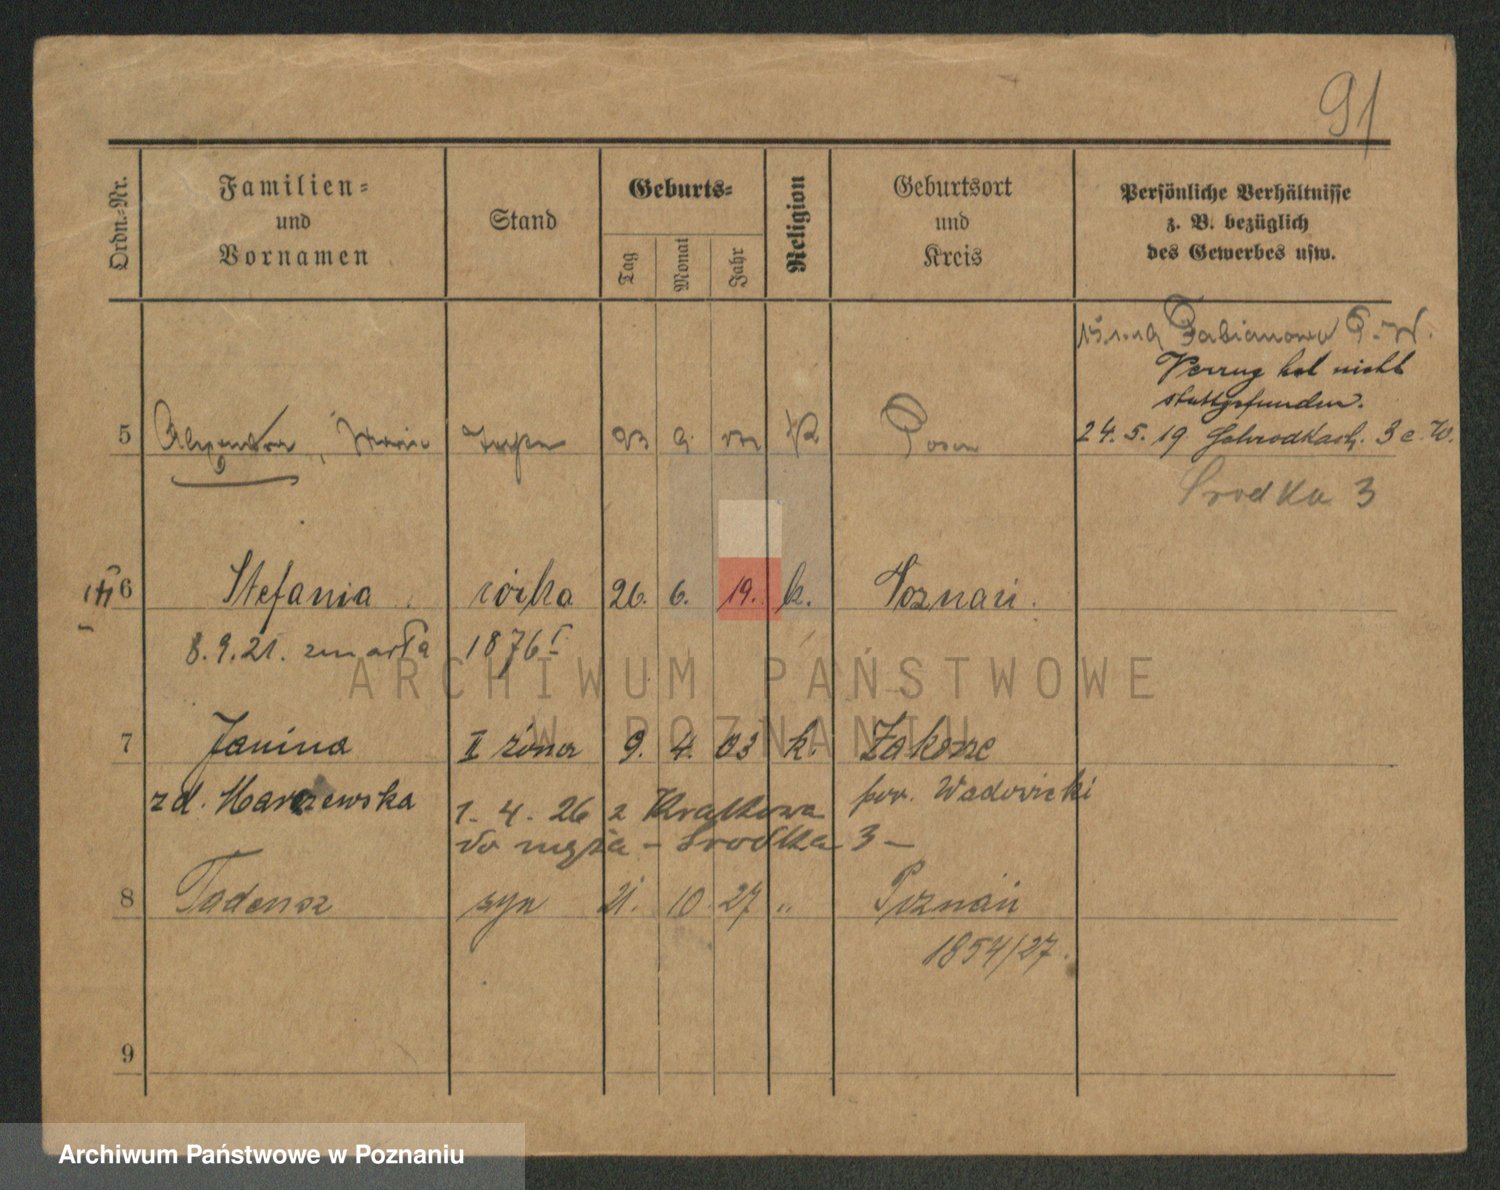 91
Ordn.-Nr.
Familien-
und
Vornamen
Stand
Geburts-
Tag
Monat
Jahr
Religion
Geburtsort
und
Kreis
Persönliche Verhältnisse
z. B. bezüglich
des Gewerbes usw.
Fabianowo P.-W.
Verzug hat nicht
stattgefunden.
5 Alexandra, Maria Posen
24. 5. 19 3 e. W.
Srodka 3
6 Stefania córka 26. 6. 19. k. Poznań.
8. 9. 21. zmarła 1876
7 Janina II żona 9. 4. 03 k.
zd. Marszewska
pow. Wadowicki
1. 4. 26 z Krakowa
do męża - Srodka 3 -
8 Tadeusz syn 21. 10. 27 " Poznań
1854/27.
9
ARCHIWUM PAŃSTWOWE
W POZNANIU
Archiwum Państwowe w Poznaniu